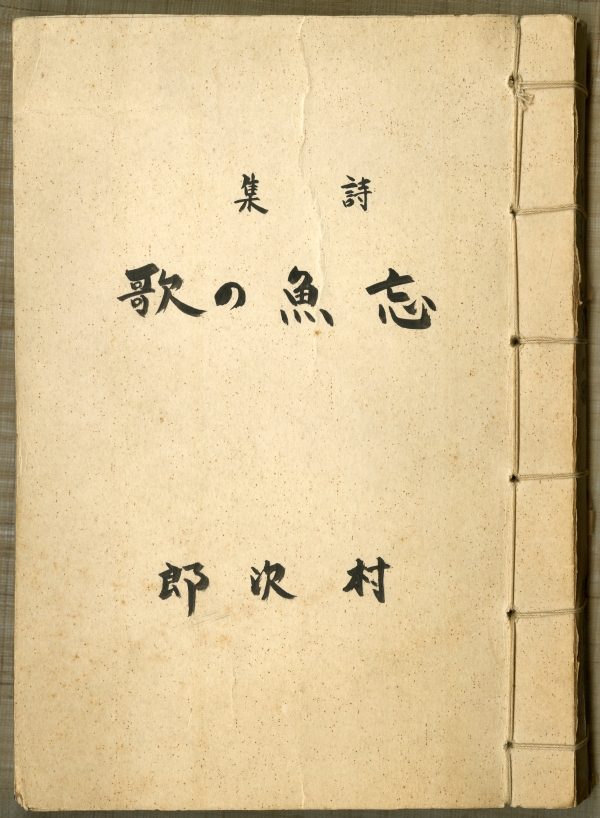 詩集
忘魚の歌
村次郎